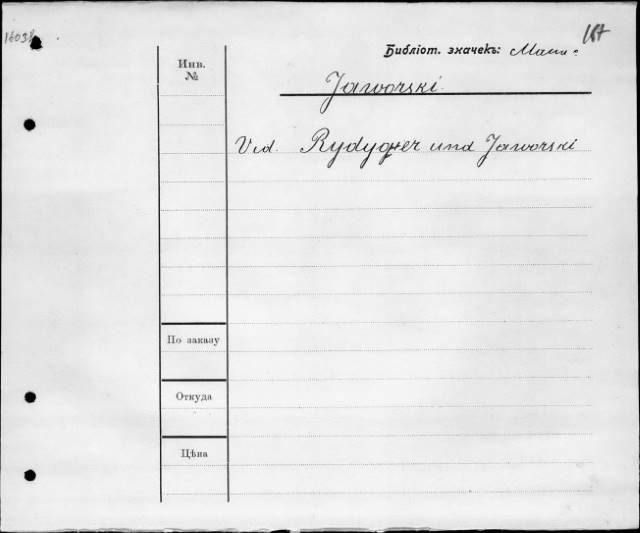 167
Инв.
№
Библіот. значекъ:
Jaworski
Vid. Rydygier und Jaworski
По заказу
Откуда
Цѣна